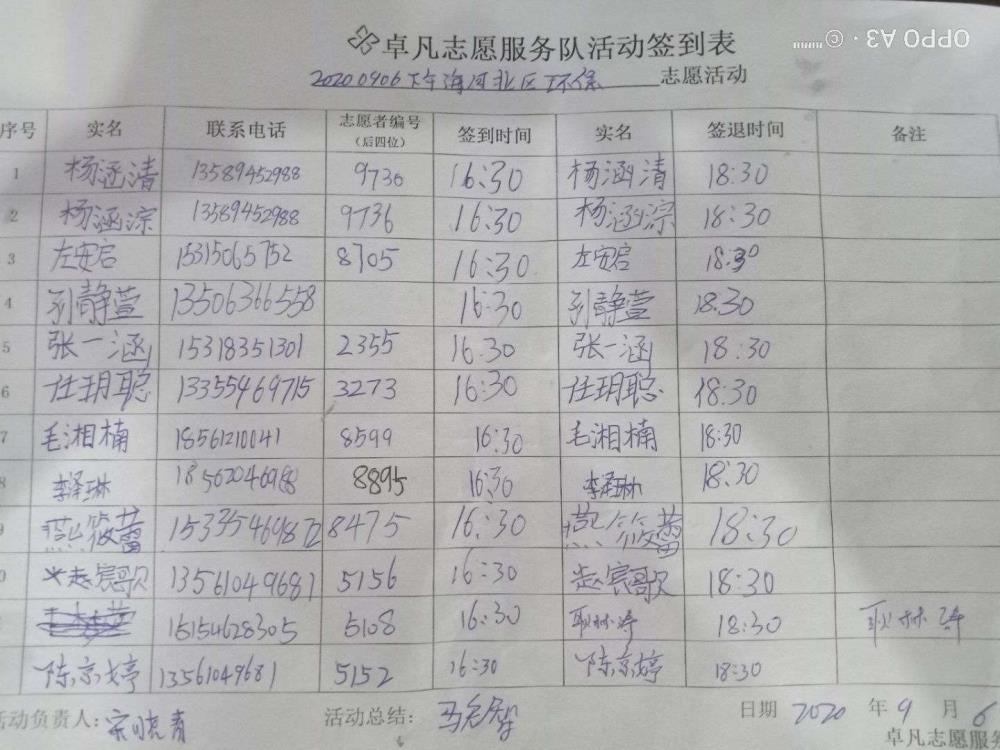 OPPO A3
卓凡志愿服务队活动签到表
20200906下午海河北区环保 志愿活动
序号 实名 联系电话 志愿者编号（后四位） 签到时间 实名 签退时间 备注
1 杨涵清 13589452988 9736 16:30 杨涵清 18:30
2 杨涵淙 13589452988 9736 16:30 杨涵淙 18:30
3 左安启 15315065752 8705 16:30 左安启 18:30
4 刘静萱 13506366558 16:30 刘静萱 18:30
5 张一涵 15318351301 2355 16:30 张一涵 18:30
6 任玥聪 13355469715 3273 16:30 任玥聪 18:30
7 毛湘楠 18561210041 8599 16:30 毛湘楠 18:30
8 李泽琳 8895 16:30 李泽琳 18:30
9 燕筱蕾 8475 16:30 燕筱蕾 18:30
0 赵宸歌 13561049681 5156 16:30 赵宸歌 18:30
15154628305 5108 16:30 耿林涛 18:30 耿林涛
陈京婷 13561049681 5152 16:30 陈京婷 18:30
活动负责人：宋晓青 活动总结： 日期 2020 年 9 月 6
卓凡志愿服务